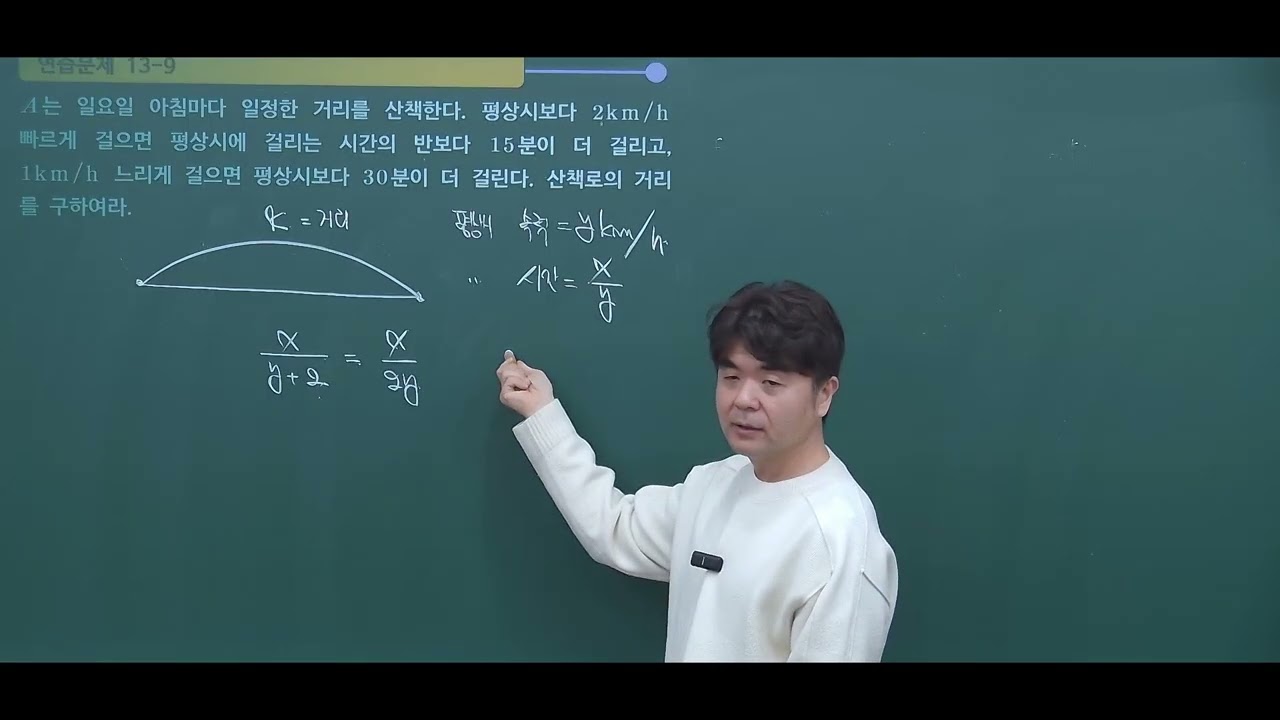 연습문제 13-9
A는 일요일 아침마다 일정한 거리를 산책한다. 평상시보다 2km/h
빠르게 걸으면 평상시에 걸리는 시간의 반보다 15분이 더 걸리고,
1km/h 느리게 걸으면 평상시보다 30분이 더 걸린다. 산책로의 거리
를 구하여라.
x = 거리
평상시 속력 = y km/h
〃 시간 = x/y
x/(y+2) = x/2y